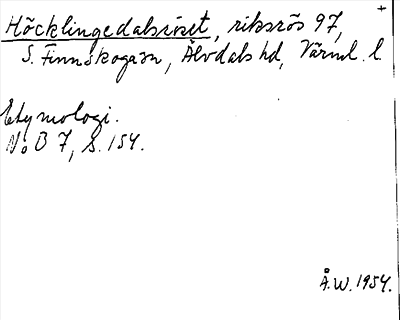 +
Höcklingedalsröset, riksrös 97,
S. Finnskogasn, Älvdals hd, Värml. l.
Etymologi.
No B 7, S. 154.
Å.W. 1954.